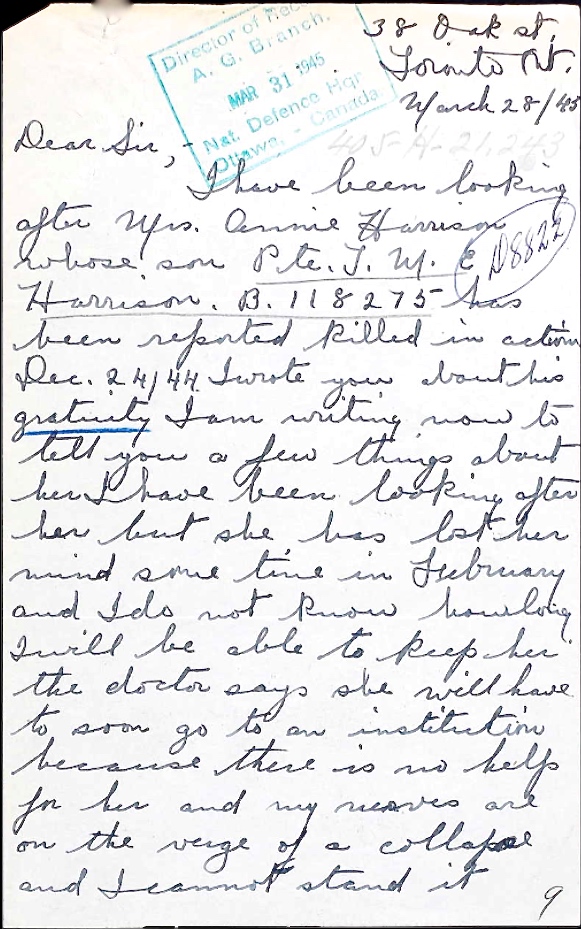 38 Oak st.
Toronto Ont.
March 28/45
Director of Rec
A. G. Branch.
MAR 31 1945
Nat. Defence Hqr
Ottawa, - Canada.
405-H-21,243
Dear Sir,-
I have been looking
after Mrs. Annie Harrison
whose son Pte. J. M. E
D8822
Harrison. B. 118275 has
been reported killed in action
Dec. 24/44 I wrote you about his
gratuity I am writing now to
tell you a few things about
her I have been looking after
her but she has lost her
mind some time in February
and I do not know how long
I will be able to keep her
the doctor says she will have
to soon go to an institution
because there is no help
for her and my nerves are
on the verge of a collapse
and I cannot stand it
9